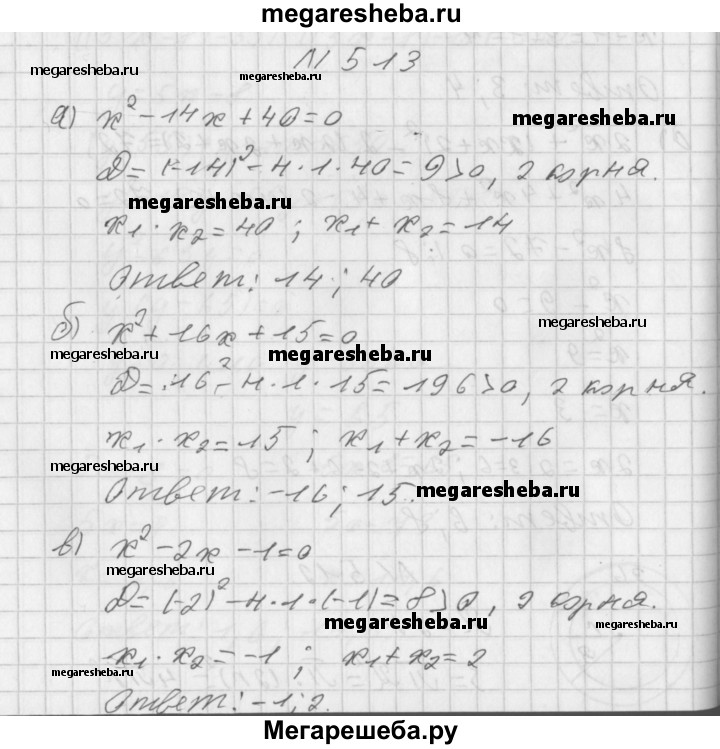 megaresheba.ru
N 513
megaresheba.ru
megaresheba.ru
а) x² - 14x + 40 = 0
megaresheba.ru
D = (-14)² - 4·1·40 = 9 > 0, 2 корня.
megaresheba.ru
x₁ · x₂ = 40 ; x₁ + x₂ = 14
Ответ: 14 ; 40
б) x² + 16x + 15 = 0
megaresheba.ru
megaresheba.ru
megaresheba.ru
D = 16² - 4·1·15 = 196 > 0, 2 корня.
x₁ · x₂ = 15 ; x₁ + x₂ = -16
megaresheba.ru
Ответ: -16 ; 15.
megaresheba.ru
в) x² - 2x - 1 = 0
megaresheba.ru
D = (-2)² - 4·1·(-1) = 8 > 0, 2 корня.
megaresheba.ru
megaresheba.ru
x₁ · x₂ = -1 ; x₁ + x₂ = 2
megaresheba.ru
megaresheba.ru
Ответ: -1; 2.
Мегарешеба.ру